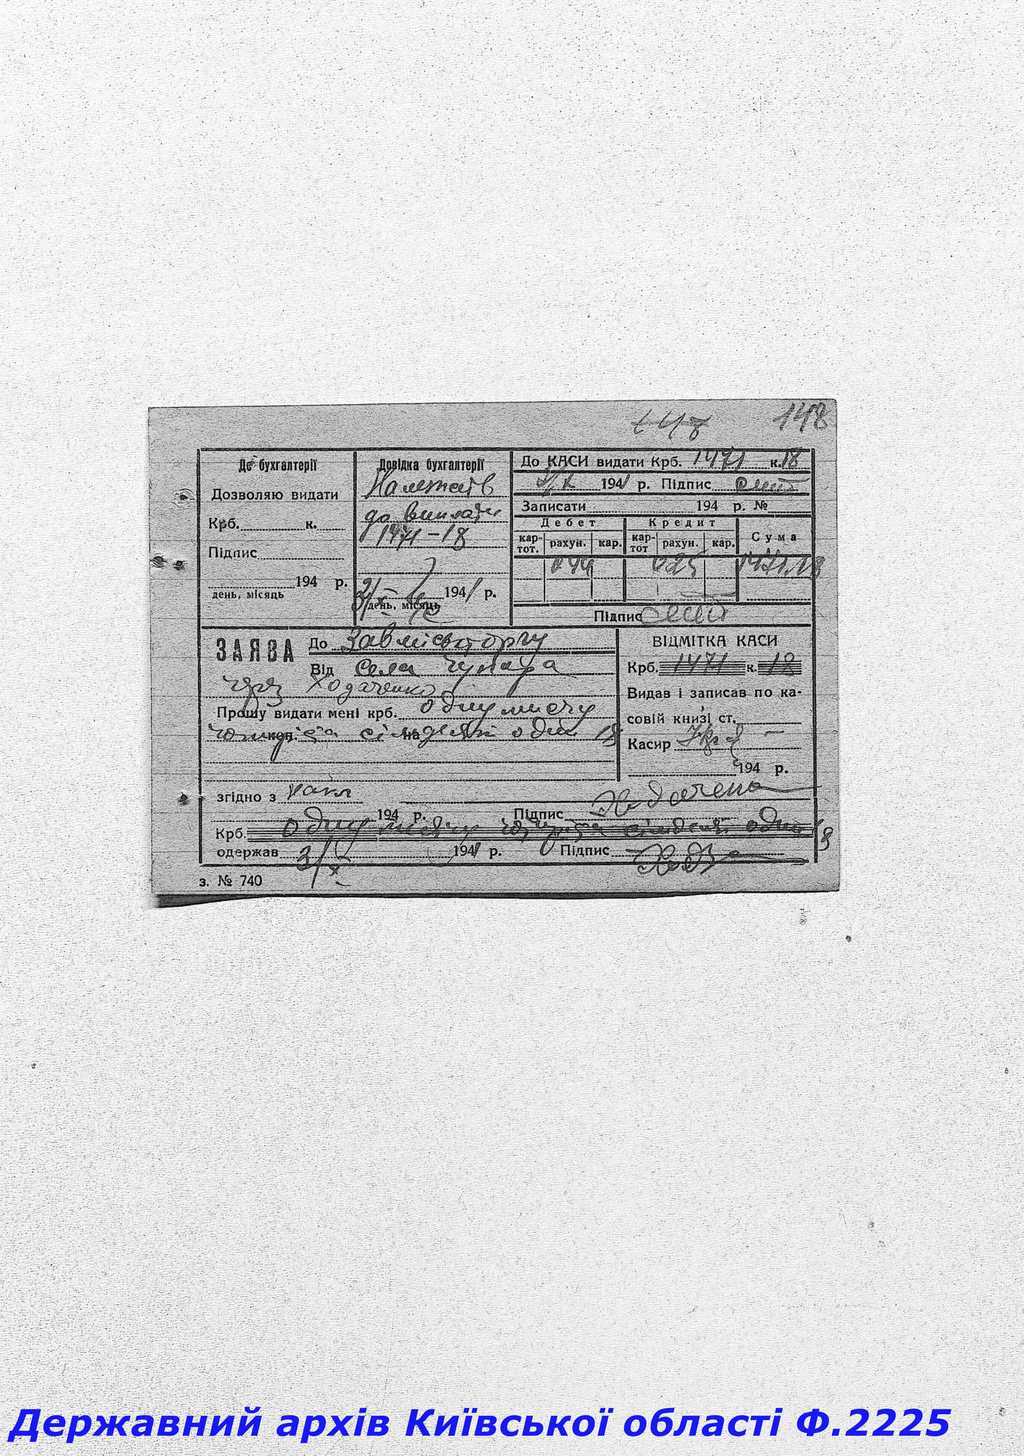 148 148
До бухгалтерії
Дозволяю видати
Крб. к.
Підпис
194 р.
день, місяць
Довідка бухгалтерії
Належить
до виплати
1471-18
3/X 1941 р.
день, місяць
До КАСИ видати Крб. 1471 к. 18
1941 р. Підпис
Записати 194 р. №
Дебет Кредит Сума
кар-тот. рахун. кар. кар-тот рахун. кар.
044 025 1471.18
Підпис
ЗАЯВА До Завміськторгу
Від села
через Ходаченко
Прошу видати мені крб. одну тисячу
чотириста сімдесят один 18
коп. на
ВІДМІТКА КАСИ
Крб. 1471 к. 18
Видав і записав по ка-
совій книзі ст.
Касир
194 р.
згідно з
194 р. Підпис Ходаченко
Крб. одну тисячу чотириста сімдесят один 18
одержав 3/X 1941 р. Підпис
з. № 740
Державний архів Київської області Ф.2225